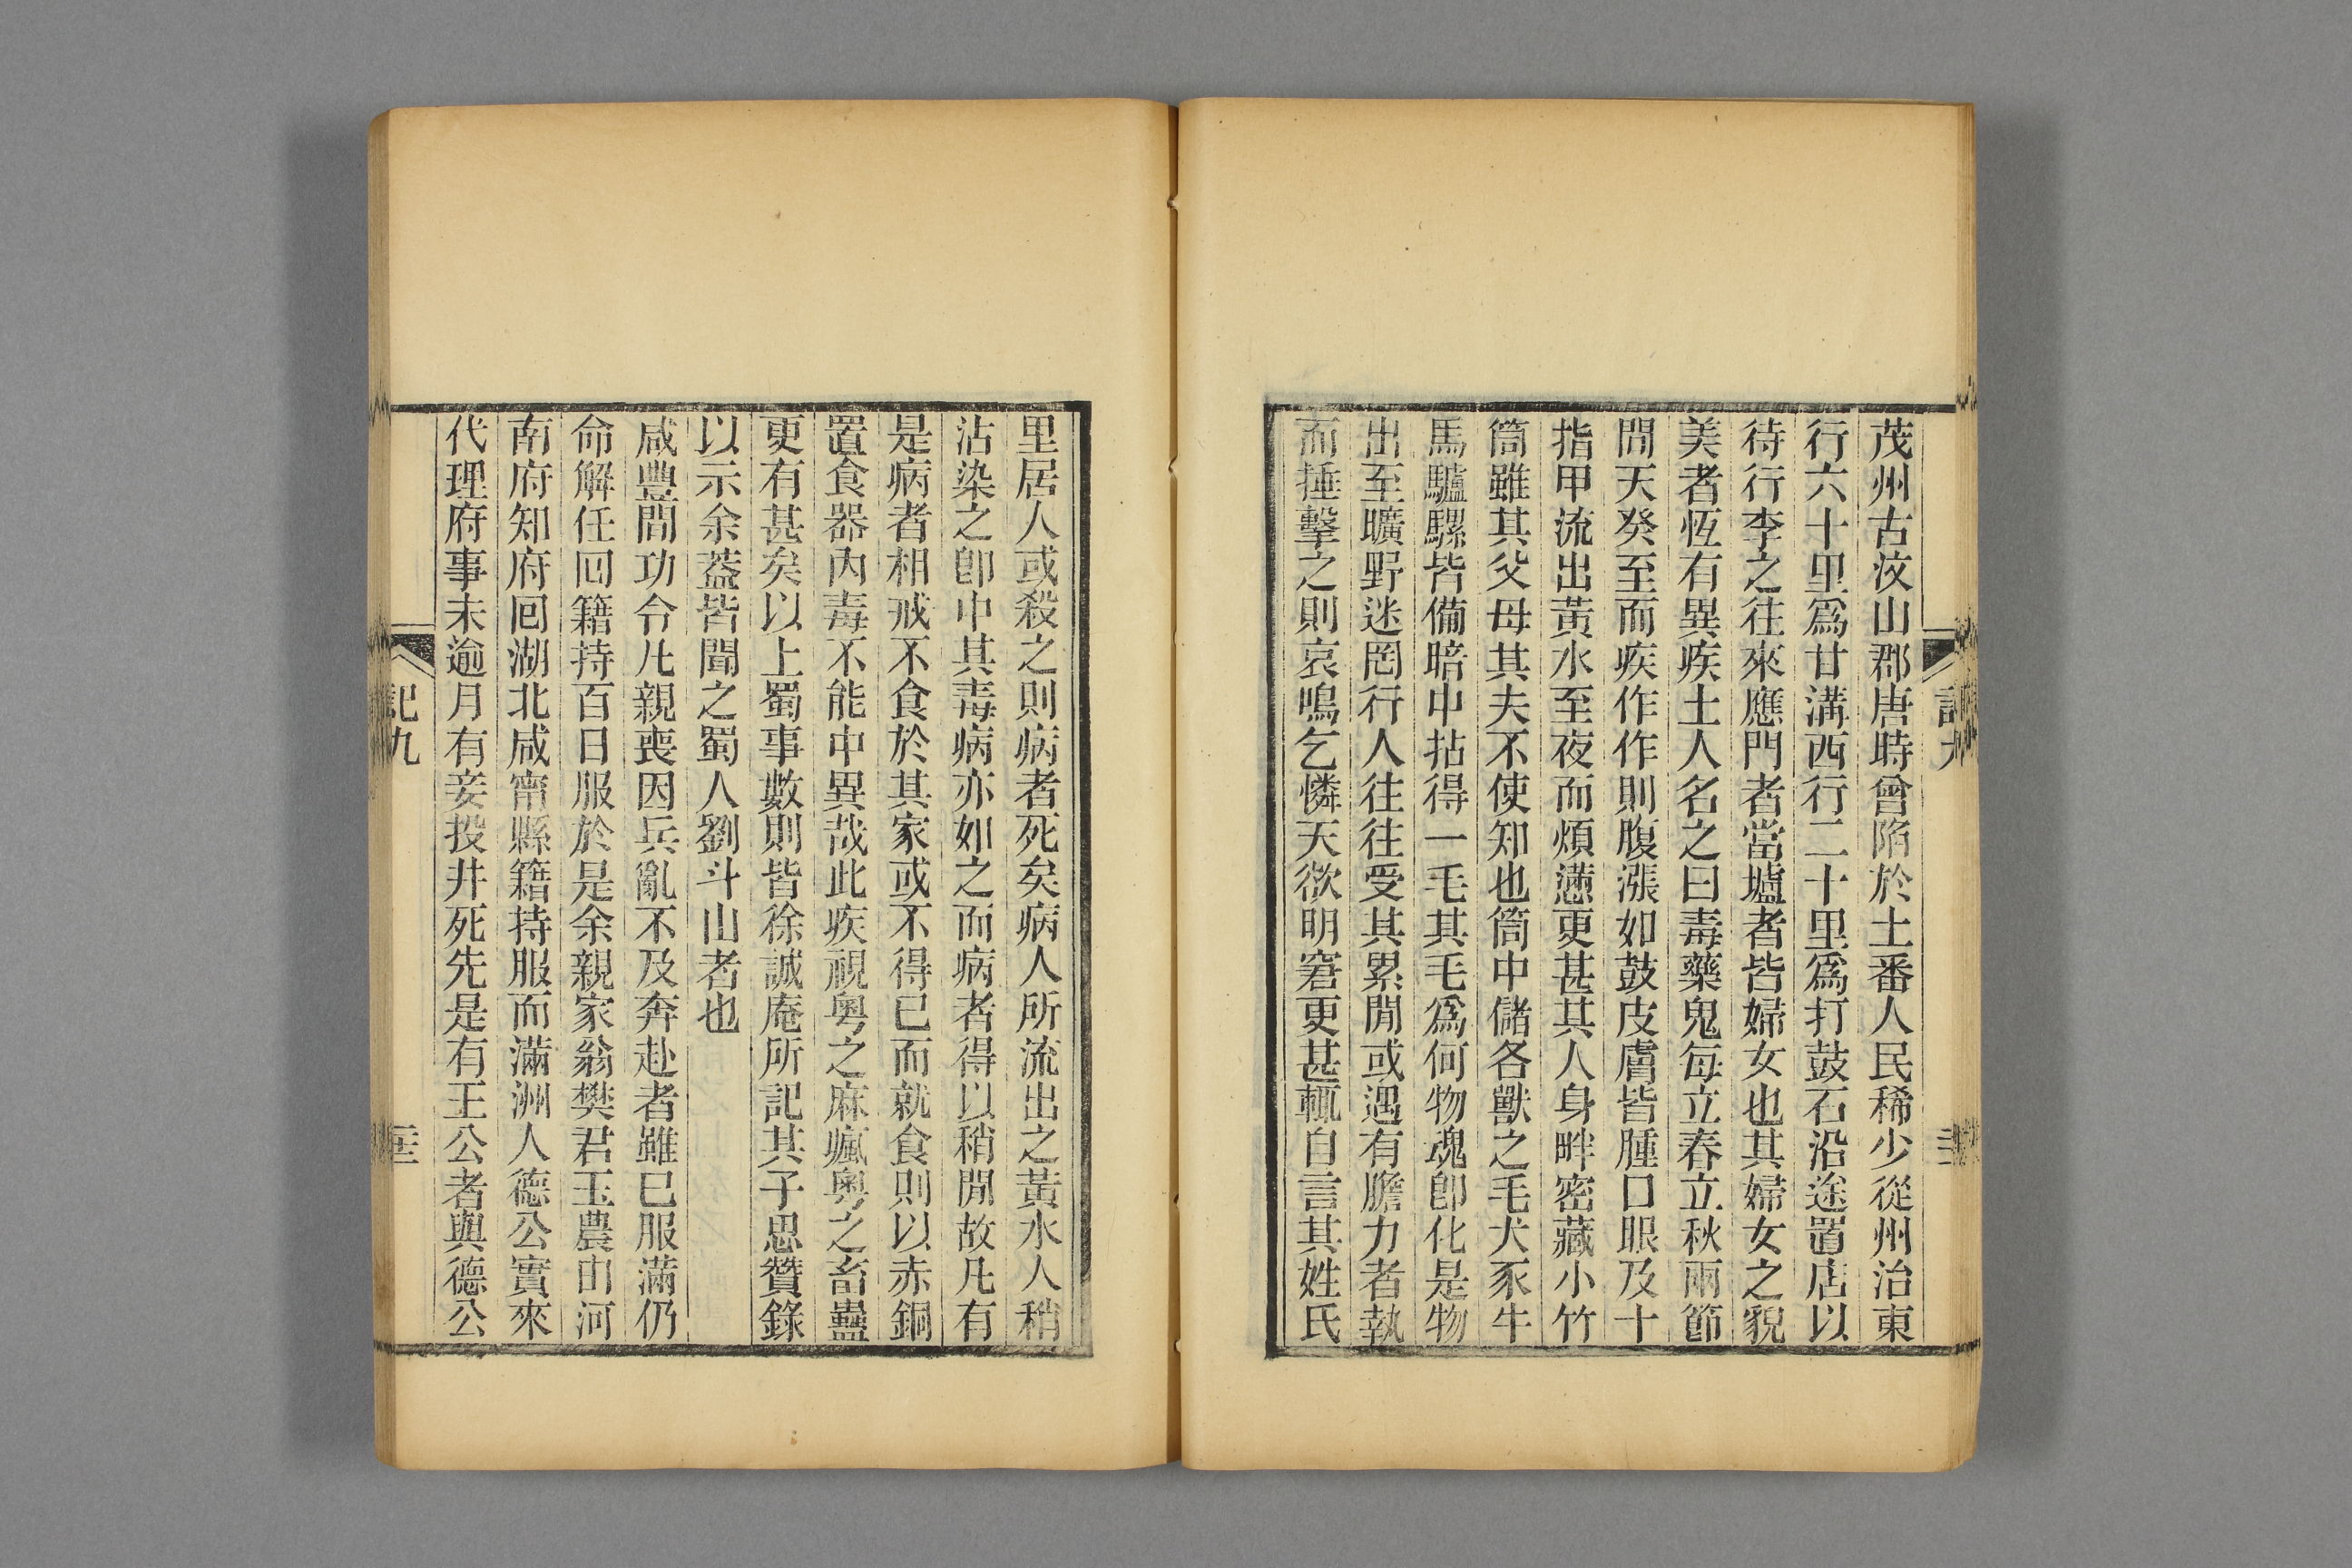 茂州古汶山郡唐時曾陷於土番人民稀少從州治東
行六十里爲甘溝西行二十里爲打鼓石沿途置店以
待行李之往來應門者當壚者皆婦女也其婦女之貌
美者恆有異疾土人名之曰毒藥鬼每立春立秋兩節
間天癸至而疾作作則腹漲如鼓皮膚皆腫口眼及十
指甲流出黃水至夜而煩懣更甚其人身畔密藏小竹
筒雖其父母其夫不使知也筒中儲各獸之毛犬豕牛
馬驢騾皆備暗中拈得一毛其毛爲何物魂卽化是物
出至曠野迷罔行人往往受其累閒或遇有膽力者執
而捶擊之則哀鳴乞憐天欲明窘更甚輒自言其姓氏
里居人或殺之則病者死矣病人所流出之黃水人稍
沾染之卽中其毒病亦如之而病者得以稍閒故凡有
是病者相戒不食於其家或不得已而就食則以赤銅
置食器內毒不能中異哉此疾視粵之麻瘋粵之畜蠱
更有甚矣以上蜀事數則皆徐誠庵所記其子思贊錄
以示余蓋皆聞之蜀人劉斗山者也
咸豐間功令凡親喪因兵亂不及奔赴者雖已服滿仍
命解任回籍持百日服於是余親家翁樊君玉農由河
南府知府回湖北咸甯縣籍持服而滿洲人德公實來
代理府事未逾月有妾投井死先是有王公者與德公
記九